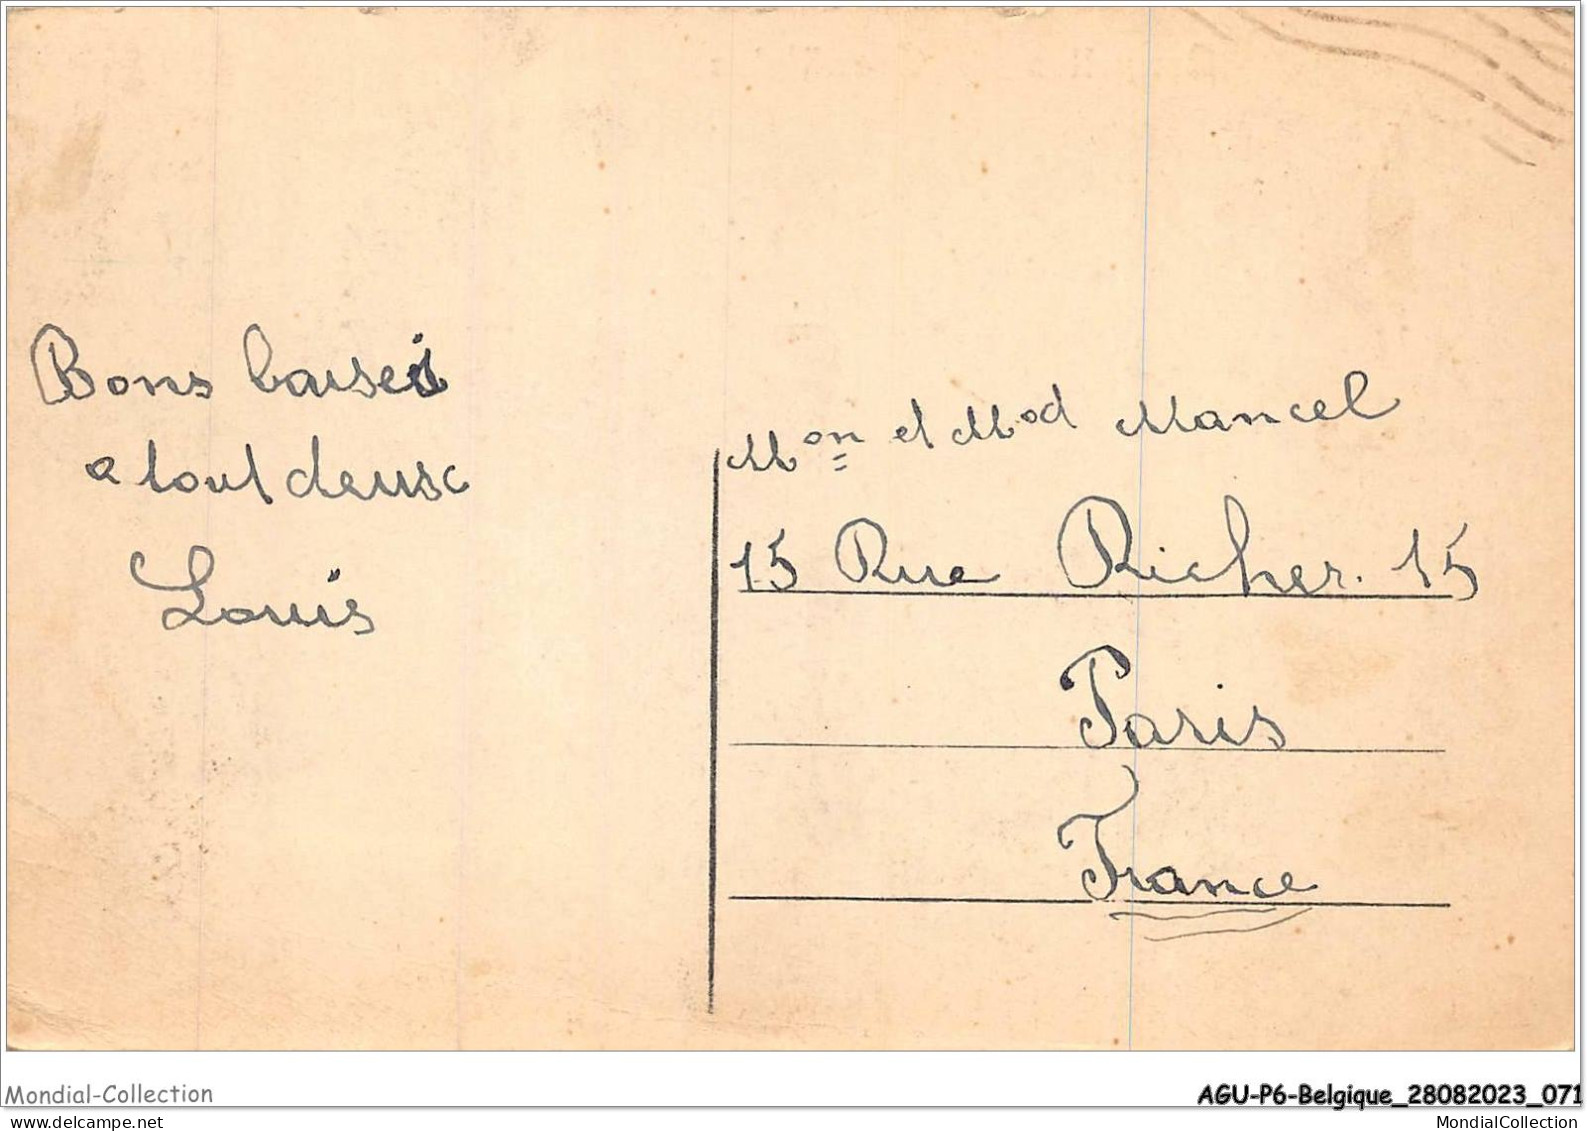 Bons baiseis
a tout deux
Louis
Mon et Mad Mancel
15 Rue Richer. 15
Paris
France
Mondial-Collection
AGU-P6-Belgique_28082023_071
www.delcampe.net
MondialCollection